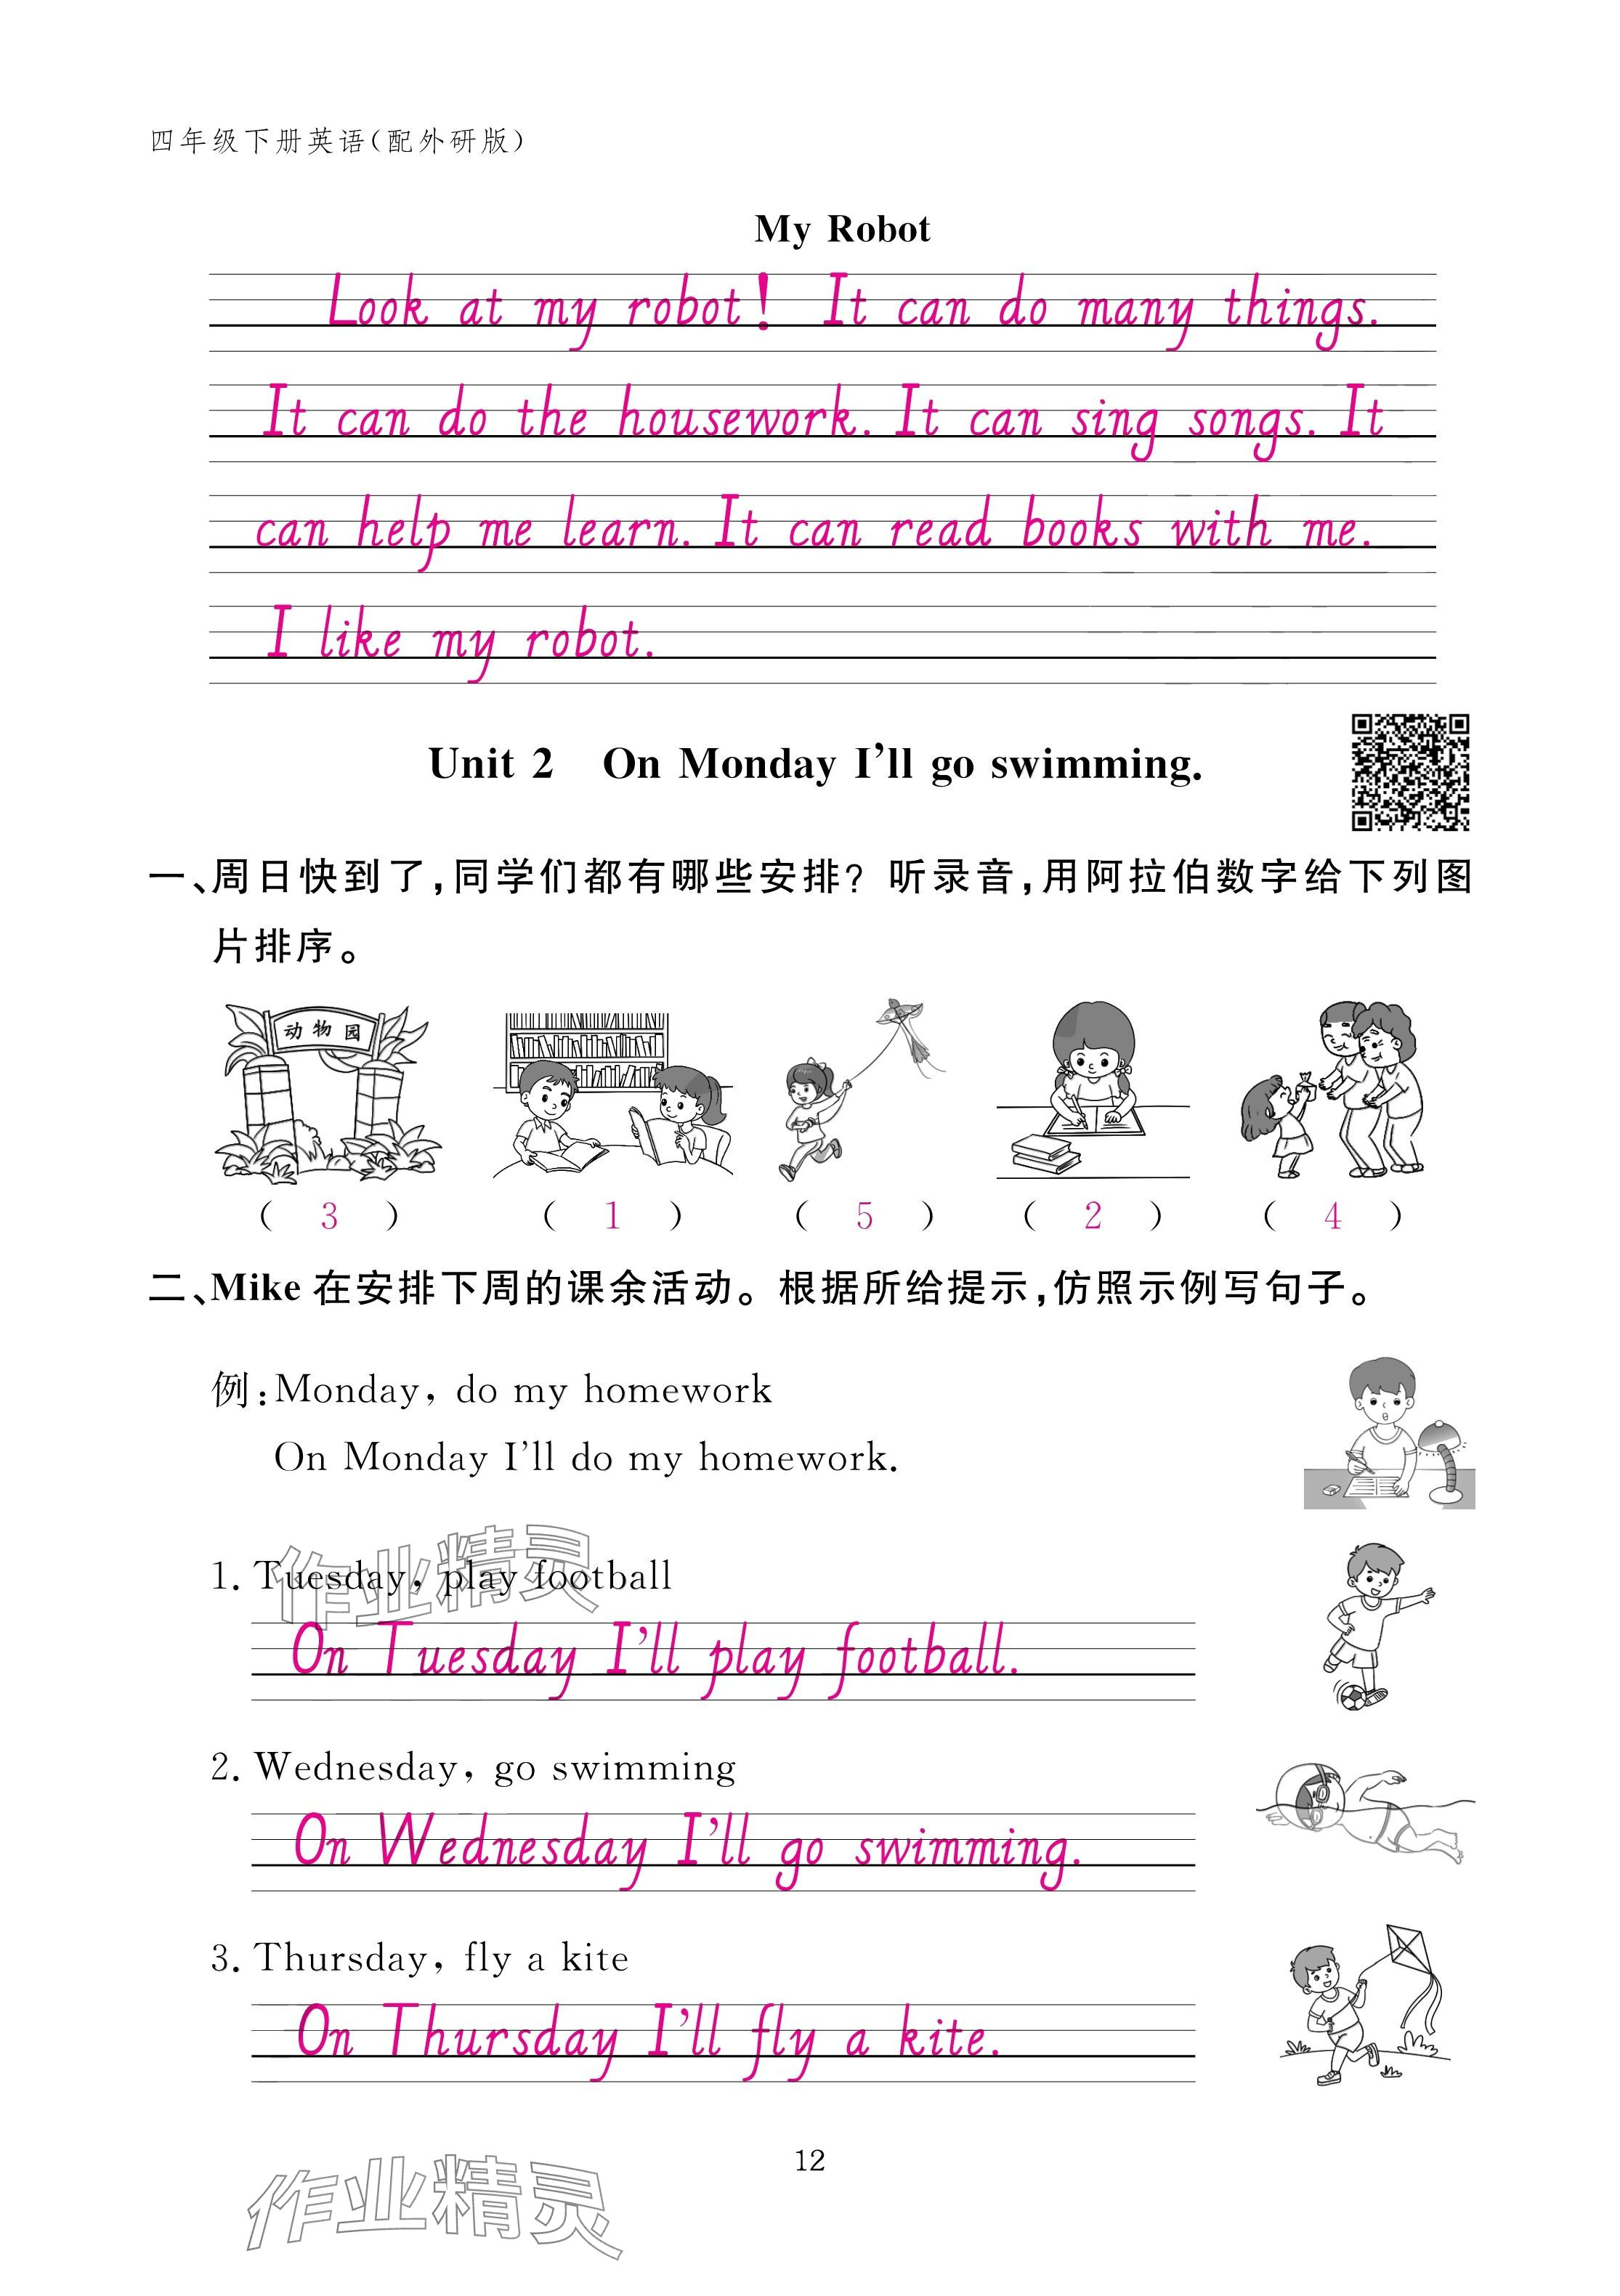 四年级下册英语(配外研版)
My Robot
Look at my robot! It can do many things.
It can do the housework. It can sing songs. It
can help me learn. It can read books with me.
I like my robot.
Unit 2 On Monday I'll go swimming.
一、周日快到了,同学们都有哪些安排? 听录音,用阿拉伯数字给下列图
片排序。
动物园
( 3 ) ( 1 ) ( 5 ) ( 2 ) ( 4 )
二、Mike 在安排下周的课余活动。根据所给提示,仿照示例写句子。
例:Monday, do my homework
On Monday I'll do my homework.
1. Tuesday, play football
作业精灵
On Tuesday I'll play football.
2. Wednesday, go swimming
On Wednesday I'll go swimming.
3. Thursday, fly a kite
On Thursday I'll fly a kite.
12
作业精灵